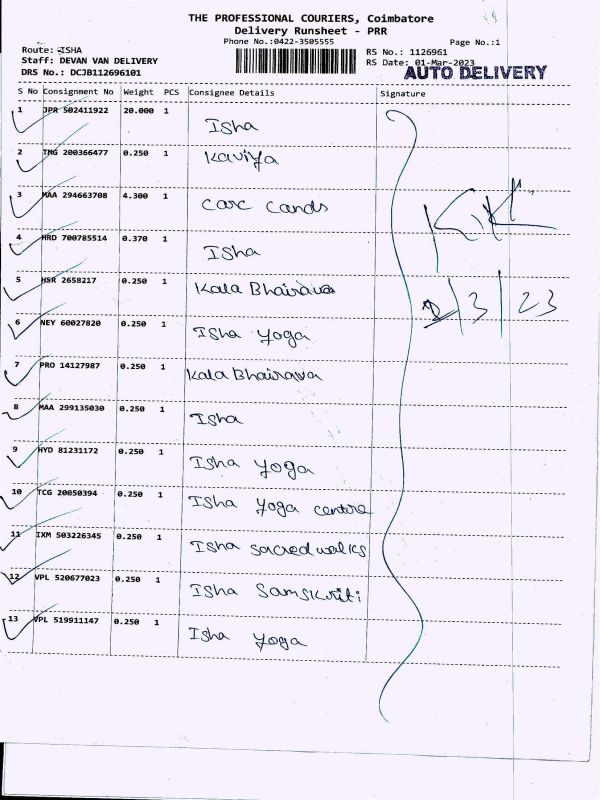 THE PROFESSIONAL COURIERS, Coimbatore
Delivery Runsheet - PRR
Phone No.:0422-3505555 Page No.:1
Route: ISHA RS No.: 1126961
Staff: DEVAN VAN DELIVERY RS Date: 01-Mar-2023
DRS No.: DCJB112696101 AUTO DELIVERY
S No Consignment No Weight PCS Consignee Details Signature
1 JPR 502411922 20.000 1 Isha
2 TMG 200366477 0.250 1 Kaviya
3 MAA 294663708 4.300 1 carc cands
4 HRD 700785514 0.370 1 Isha
5 HSR 2658217 0.250 1 Kala Bhairava
6 NEY 60027820 0.250 1 Isha Yoga
7 PRO 14127987 0.250 1 Kala Bhairava
8 MAA 299135030 0.250 1 Isha
9 HYD 81231172 0.250 1 Isha Yoga
10 TCG 20050394 0.250 1 Isha Yoga centre
11 IXM 503226345 0.250 1 Isha sacred walks
12 VPL 520677023 0.250 1 Isha Samskriti
13 VPL 519911147 0.250 1 Isha Yoga
2/3/23